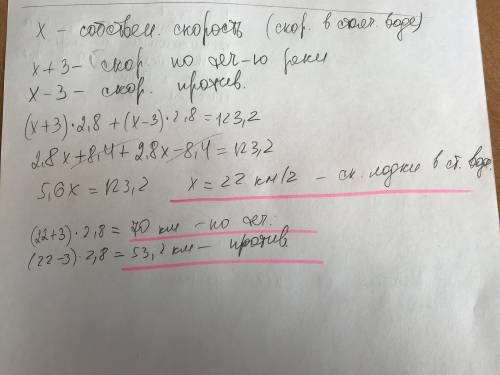 x - собствен. скорость (скор. в стояч. воде)
x+3 - скор. по теч-ю реки
x-3 - скор. против.
(x+3)·2,8+(x-3)·2,8=123,2
2,8x+8,4+2,8x-8,4=123,2
5,6x=123,2 x=22 км/г - ск. лодки в ст. воде.
(22+3)·2,8=70 км - по теч.
(22-3)·2,8=53,2 км - против